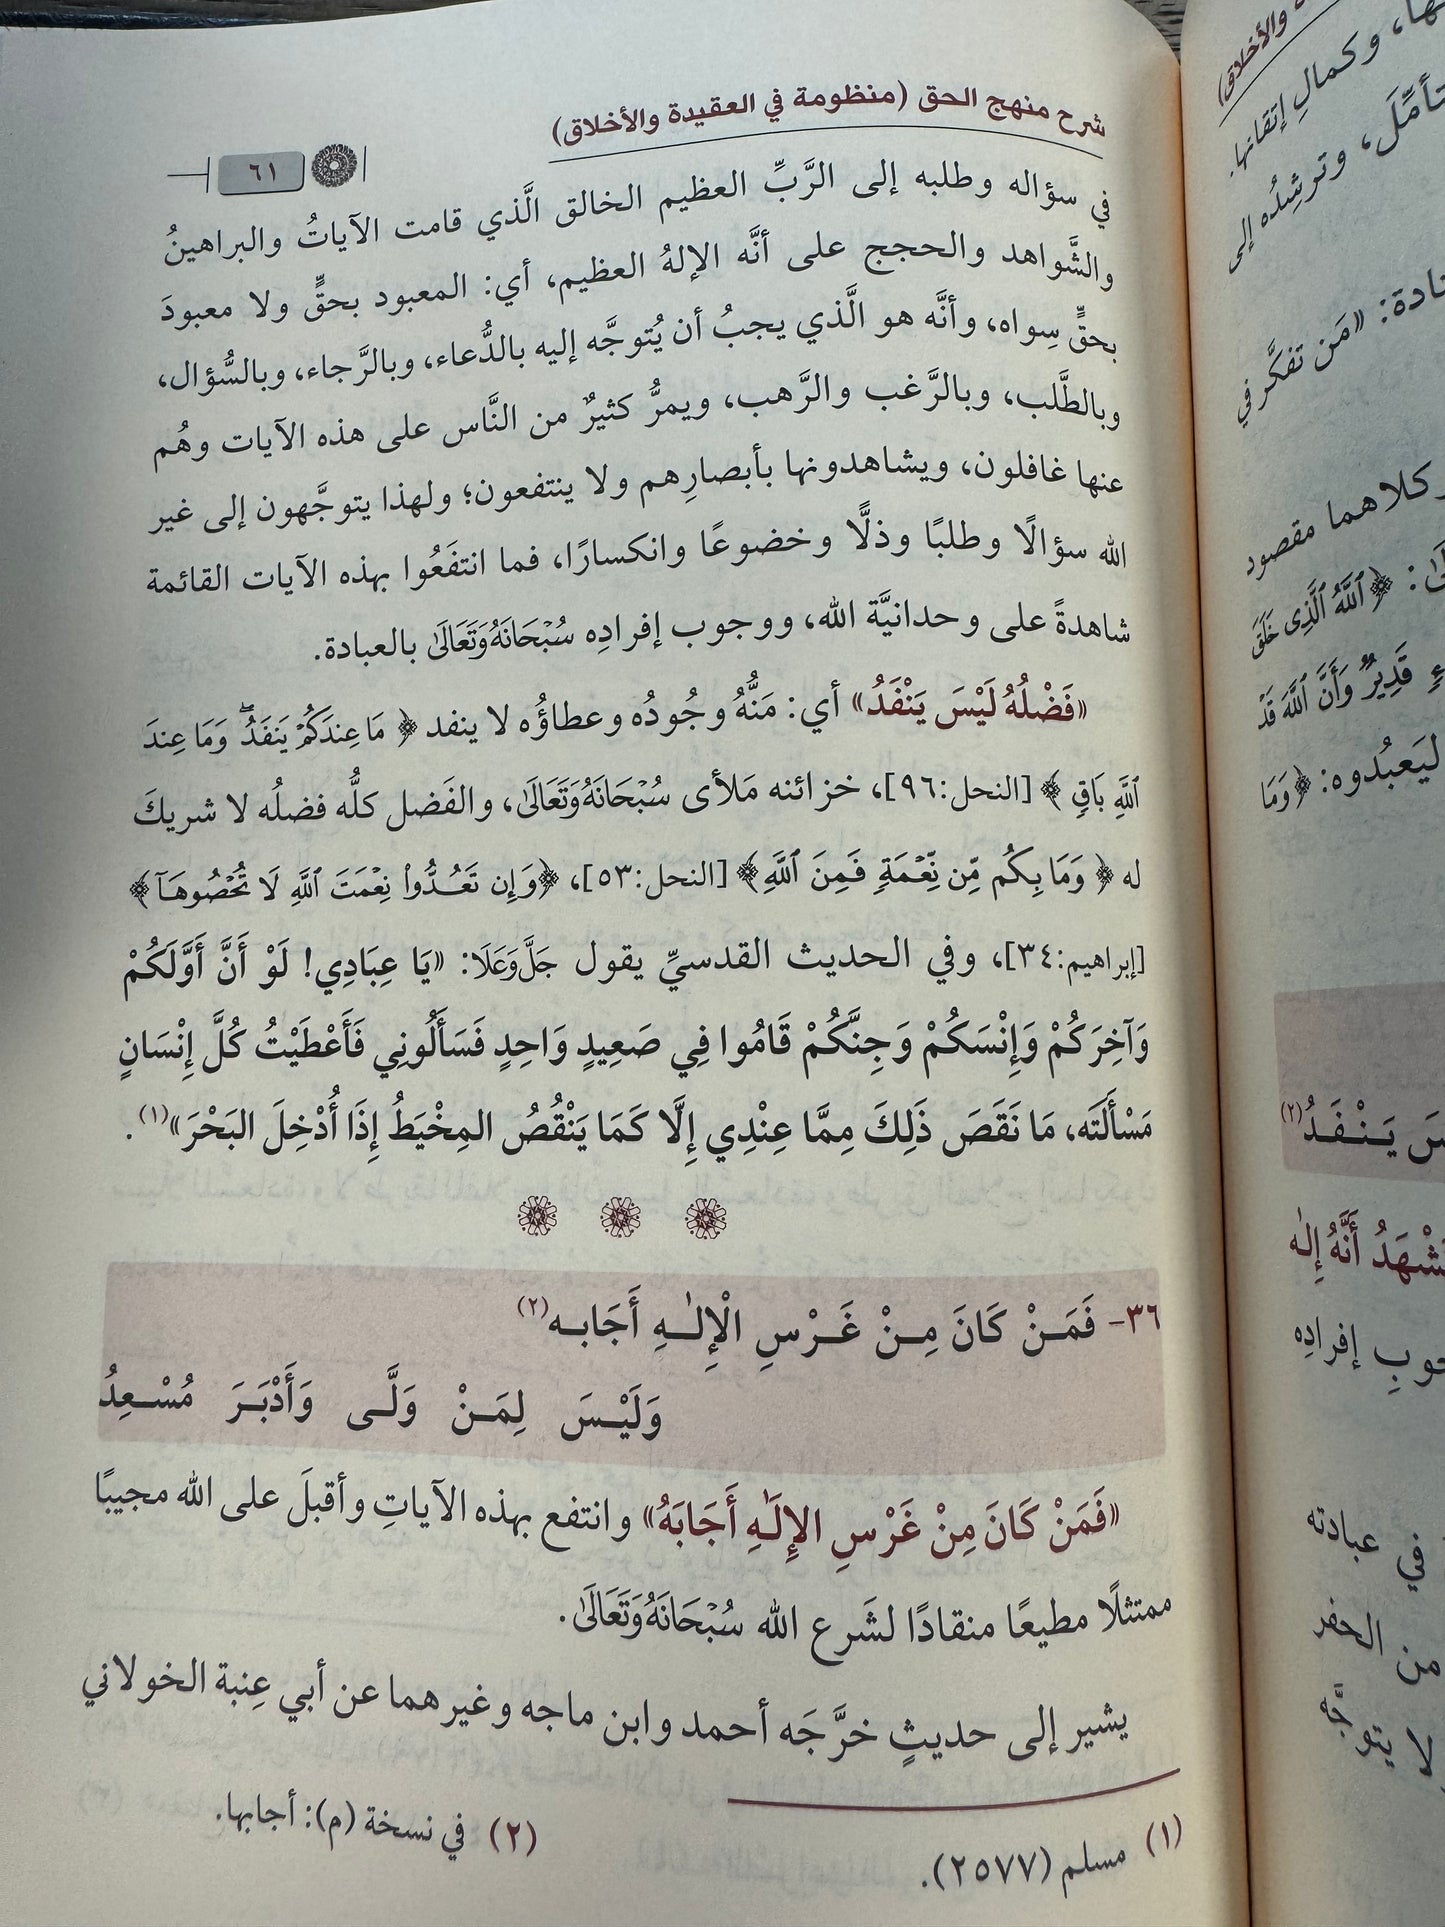 شرح منهج الحق (منظومة في العقيدة والأخلاق)
٦١
في سؤاله وطلبه إلى الرَّبِّ العظيم الخالق الَّذي قامت الآياتُ والبراهينُ
والشَّواهد والحجج على أنَّه الإلهُ العظيم، أي: المعبود بحقٍّ ولا معبودَ
بحقٍّ سِواه، وأنَّه هو الَّذي يجبُ أن يُتوجَّه إليه بالدُّعاء، وبالرَّجاء، وبالسُّؤال،
وبالطَّلب، وبالرَّغب والرَّهب، ويمرُّ كثيرٌ من النَّاس على هذه الآيات وهُم
عنها غافلون، ويشاهدونها بأبصارِهم ولا ينتفعون؛ ولهذا يتوجَّهون إلى غير
الله سؤالًا وطلبًا وذلًّا وخضوعًا وانكسارًا، فما انتفَعُوا بهذه الآيات القائمة
شاهدةً على وحدانيَّة الله، ووجوب إفرادِه سُبْحَانَهُ وَتَعَالَىٰ بالعبادة.
«فَضْلُهُ لَيْسَ يَنْفَدُ» أي: مَنُّهُ وجُودُه وعطاؤُه لا ينفد ﴿مَا عِندَكُمْ يَنفَدُ ۖ وَمَا عِندَ
ٱللَّهِ بَاقٍ﴾ [النحل:٩٦]، خزائنه مَلأى سُبْحَانَهُ وَتَعَالَىٰ، والفَضل كلُّه فضلُه لا شريكَ
له ﴿وَمَا بِكُم مِّن نِّعْمَةٍ فَمِنَ ٱللَّهِ﴾ [النحل:٥٣]، ﴿وَإِن تَعُدُّوا۟ نِعْمَتَ ٱللَّهِ لَا تُحْصُوهَآ﴾
[إبراهيم:٣٤]، وفي الحديث القدسيِّ يقول جَلَّ وَعَلَا: «يَا عِبَادِي! لَوْ أَنَّ أَوَّلَكُمْ
وَآخِرَكُمْ وَإِنْسَكُمْ وَجِنَّكُمْ قَامُوا فِي صَعِيدٍ وَاحِدٍ فَسَأَلُونِي فَأَعْطَيْتُ كُلَّ إِنْسَانٍ
مَسْأَلَتَه، مَا نَقَصَ ذَلِكَ مِمَّا عِنْدِي إِلَّا كَمَا يَنْقُصُ المِخْيَطُ إِذَا أُدْخِلَ البَحْرَ»(١).
٣٦- فَمَنْ كَانَ مِنْ غَرْسِ الْإِلَٰهِ أَجَابه(٢)
وَلَيْسَ لِمَنْ وَلَّى وَأَدْبَرَ مُسْعِدُ
«فَمَنْ كَانَ مِنْ غَرْسِ الإِلَٰهِ أَجَابَهُ» وانتفع بهذه الآياتِ وأقبلَ على الله مجيبًا
ممتثلًا مطيعًا منقادًا لشَرع الله سُبْحَانَهُ وَتَعَالَىٰ.
يشير إلى حديثٍ خرَّجَه أحمد وابن ماجه وغيرهما عن أبي عِنبة الخولاني
(١) مسلم (٢٥٧٧).
(٢) في نسخة (م): أجابها.
والأخلاق)
وكمالِ إتقانها.
تأمَّلَ، وترشِدُه إلى
«مَن تفكَّر في
كلاهما مقصود
﴿ٱللَّهُ ٱلَّذِى خَلَقَ
قَدِيرٌ وَأَنَّ ٱللَّهَ قَدْ
ليَعبُدوه: ﴿وَمَا
يَنْفَدُ(٢)
أَنَّهُ إِلٰه
إفرادِه
في عبادته
من الحفر
لا يتوجَّه